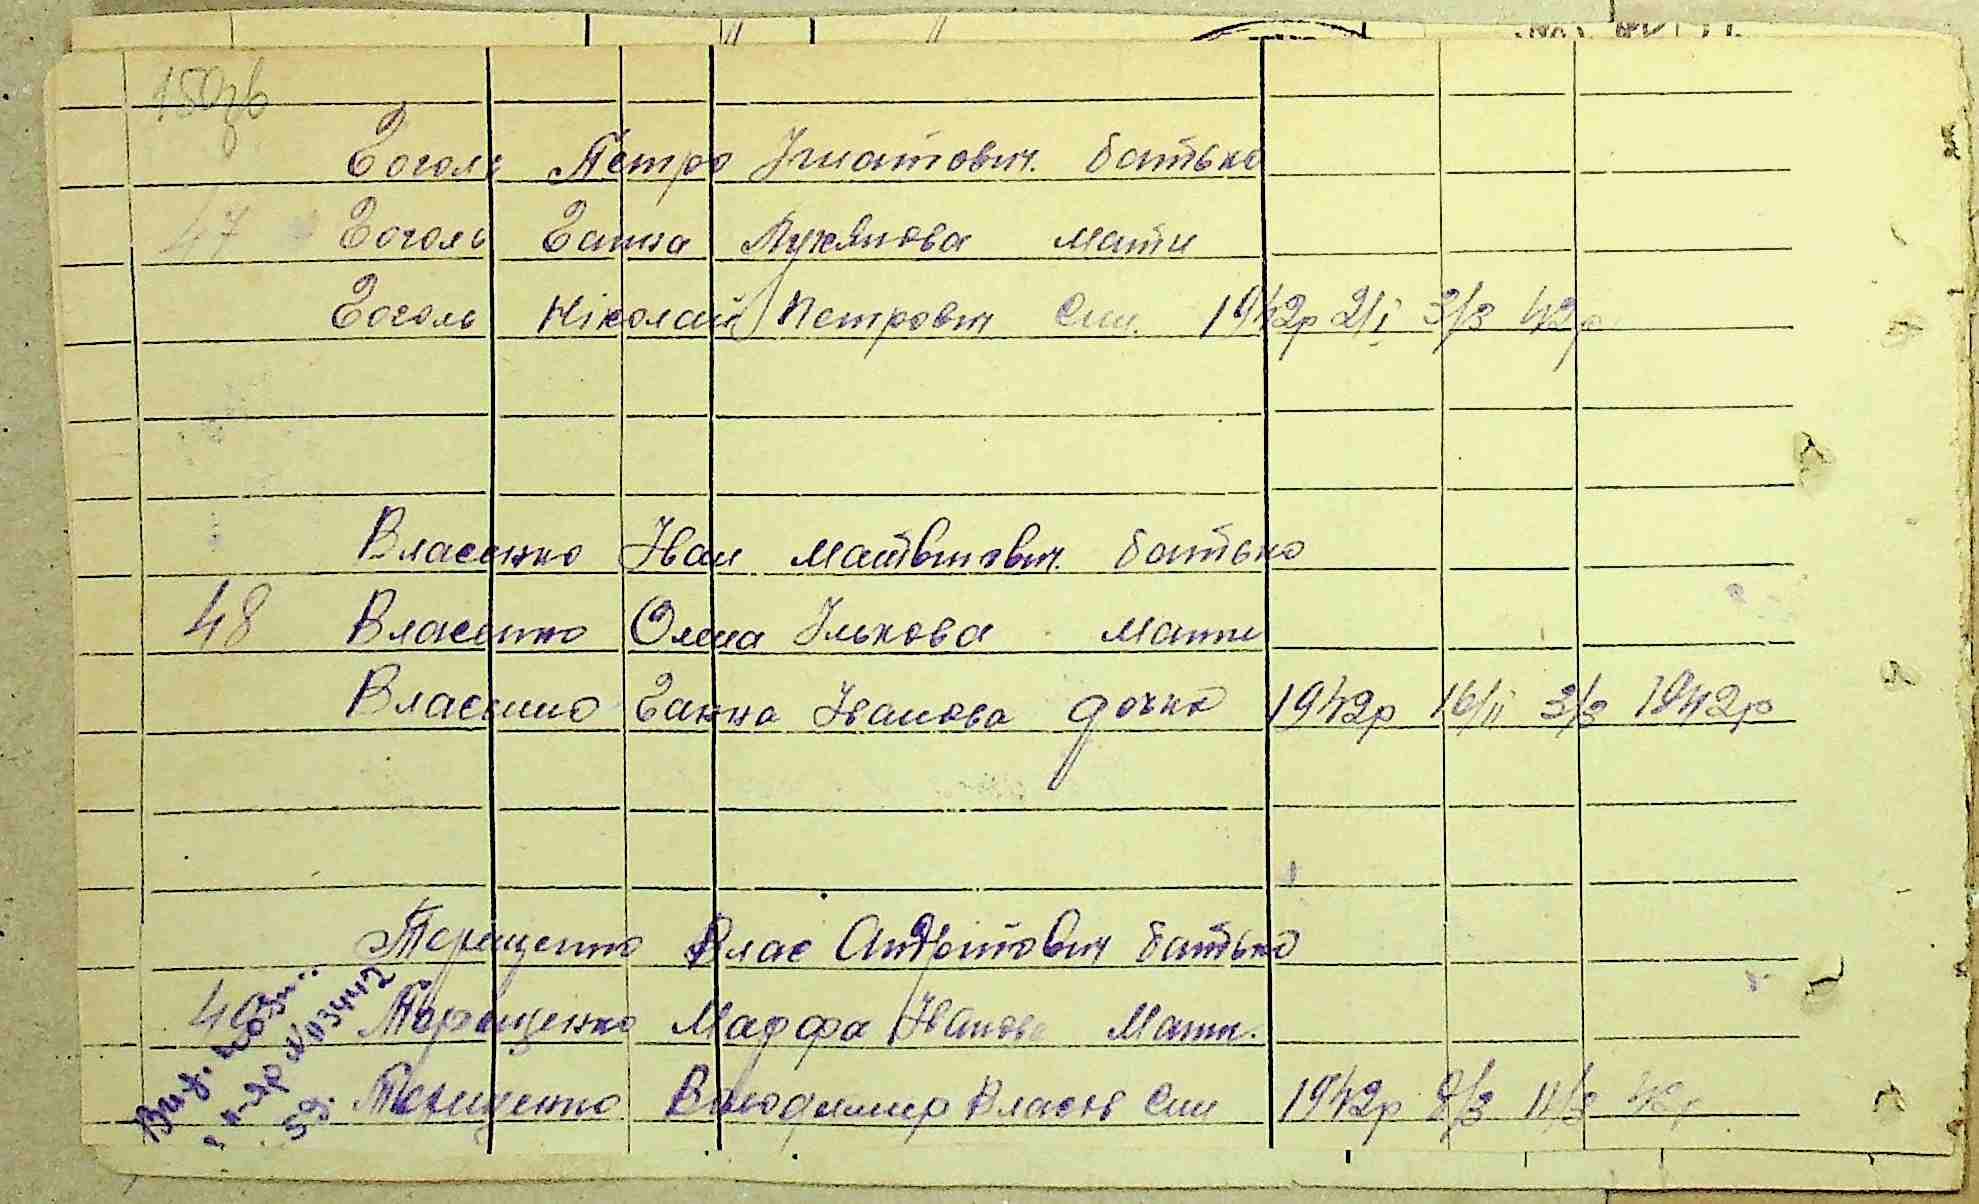 150зв
Гоголь Петро Ігнатович. батько
47 Гоголь Ганна Лукянова мати
Гоголь Ніколай Петрович Син. 1942р 2/І 3/3 42р
Власенко Іван Матвіговіч. батько
48 Власенко Олена Ількова мати
Власенко Ганна Іванова дочка 1942р 16/ІІ 3/3 1942р
Терещенко Влас Андрітович батько
49 Терещенко Марфа Іванова Мати.
Терещенко Володимир Власів Син 1942р 8/3 11/3 42р
Вид. нові..
1 П-ЯР №03442
59.